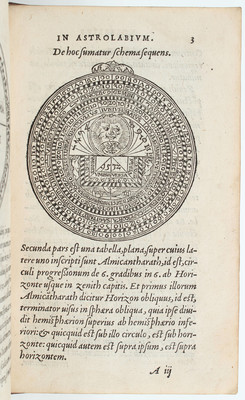 IN ASTROLABIVM. 3
De hoc sumatur schema sequens.
Secunda pars est una tabella, plana, super cuius la-
tere uno inscripti sunt Almicantharath, id est, cir-
culi progreßionum de 6. gradibus in 6. ab Hori-
zonte usque in zenith capitis. Et primus illorum
Almicātharath dicitur Horizon obliquus, id est,
terminator uisus in sphæra obliqua, quia ipse diui-
dit hemisphærion superius ab hemisphærio infe-
riori: & quicquid est sub illo circulo, est sub hori-
zonte: quicquid autem est supra ipsum, est supra
horizontem.
A iij